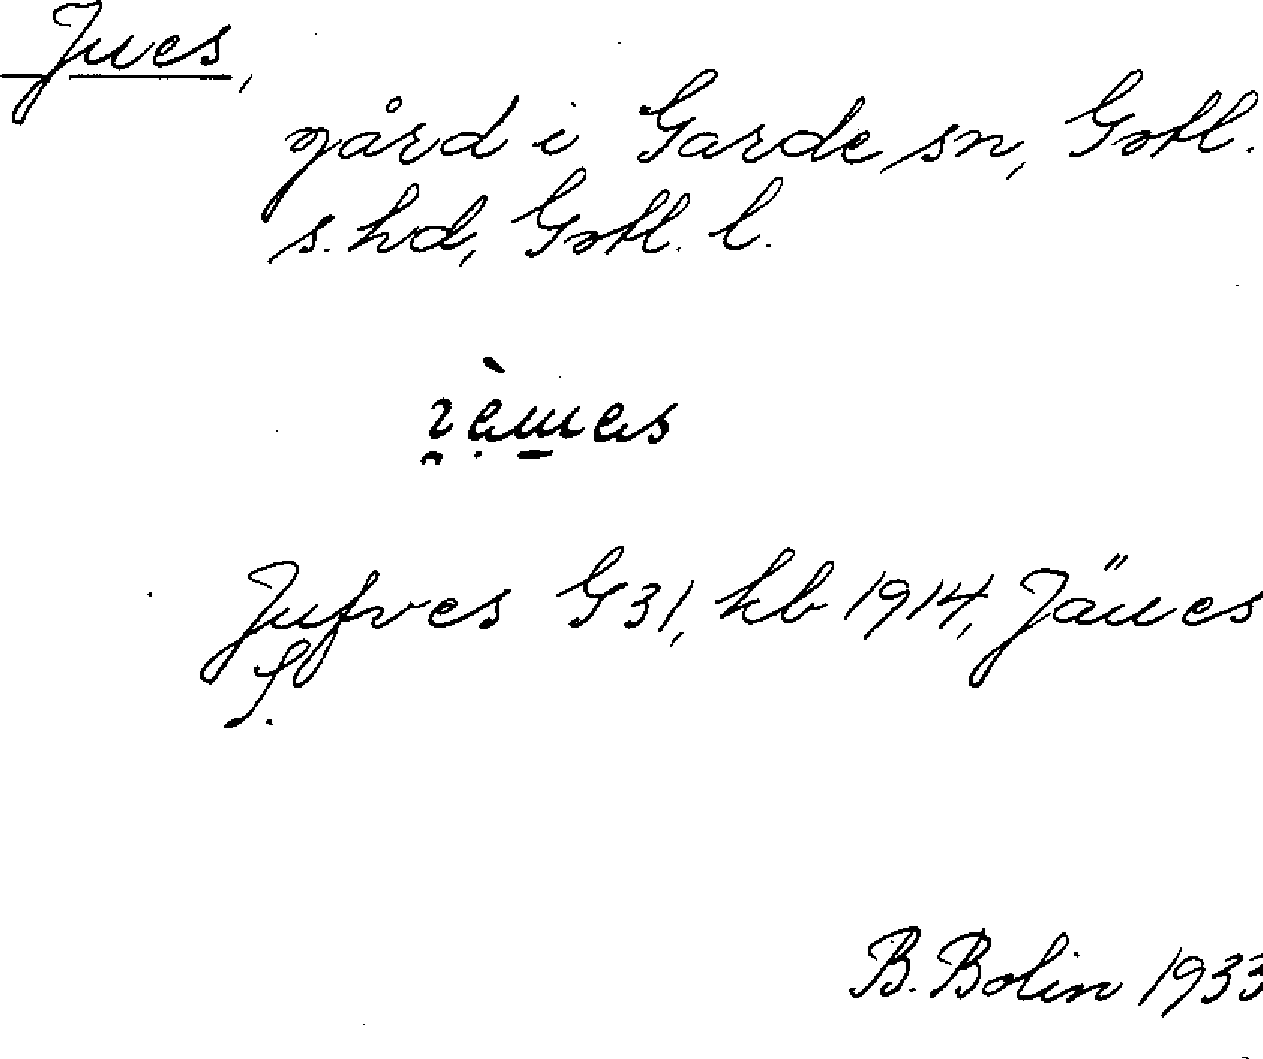 Jues,
gård i Garde sn, Gotl.
s. hd, Gotl. l.
Jufves G 31, kb 1914, Jäues
f.
B. Bolin 1933